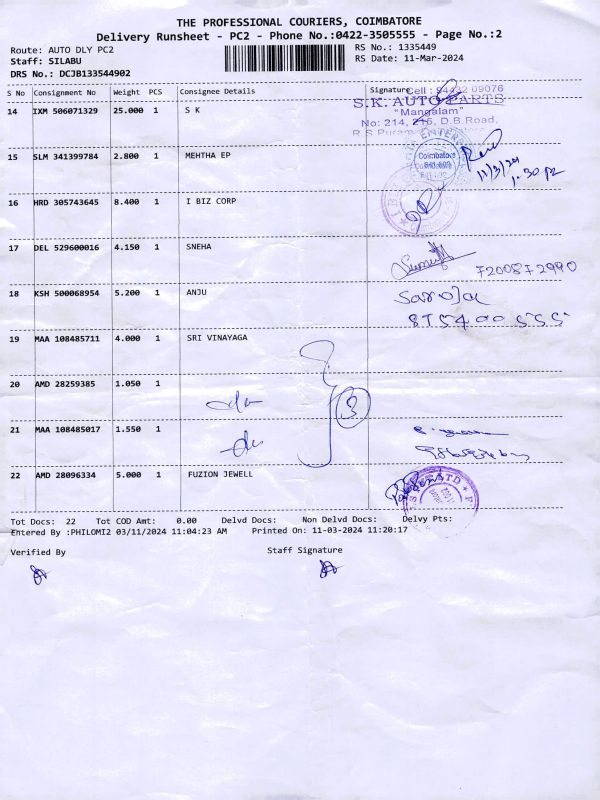 THE PROFESSIONAL COURIERS, COIMBATORE
Delivery Runsheet - PC2 - Phone No.:0422-3505555 - Page No.:2
Route: AUTO DLY PC2
Staff: SILABU
DRS No.: DCJB133544902
RS No.: 1335449
RS Date: 11-Mar-2024
S No Consignment No Weight PCS Consignee Details Signature
Cell : 94432 09076
14 IXM 506071329 25.000 1 S K
S.K. AUTO PARTS
"Mangalam"
No: 214, 215, D.B.Road,
15 SLM 341399784 2.800 1 MEHTHA EP
Coimbatore
11/3/24
1.30
16 HRD 305743645 8.400 1 I BIZ CORP
17 DEL 529600016 4.150 1 SNEHA
7200872990
18 KSH 500068954 5.200 1 ANJU
Saroja
875400555
19 MAA 108485711 4.000 1 SRI VINAYAGA
20 AMD 28259385 1.050 1
3
21 MAA 108485017 1.550 1
22 AMD 28096334 5.000 1 FUZION JEWELL
Tot Docs: 22 Tot COD Amt: 0.00 Delvd Docs: Non Delvd Docs: Delvy Pts:
Entered By :PHILOMI2 03/11/2024 11:04:23 AM Printed On: 11-03-2024 11:20:17
Verified By Staff Signature